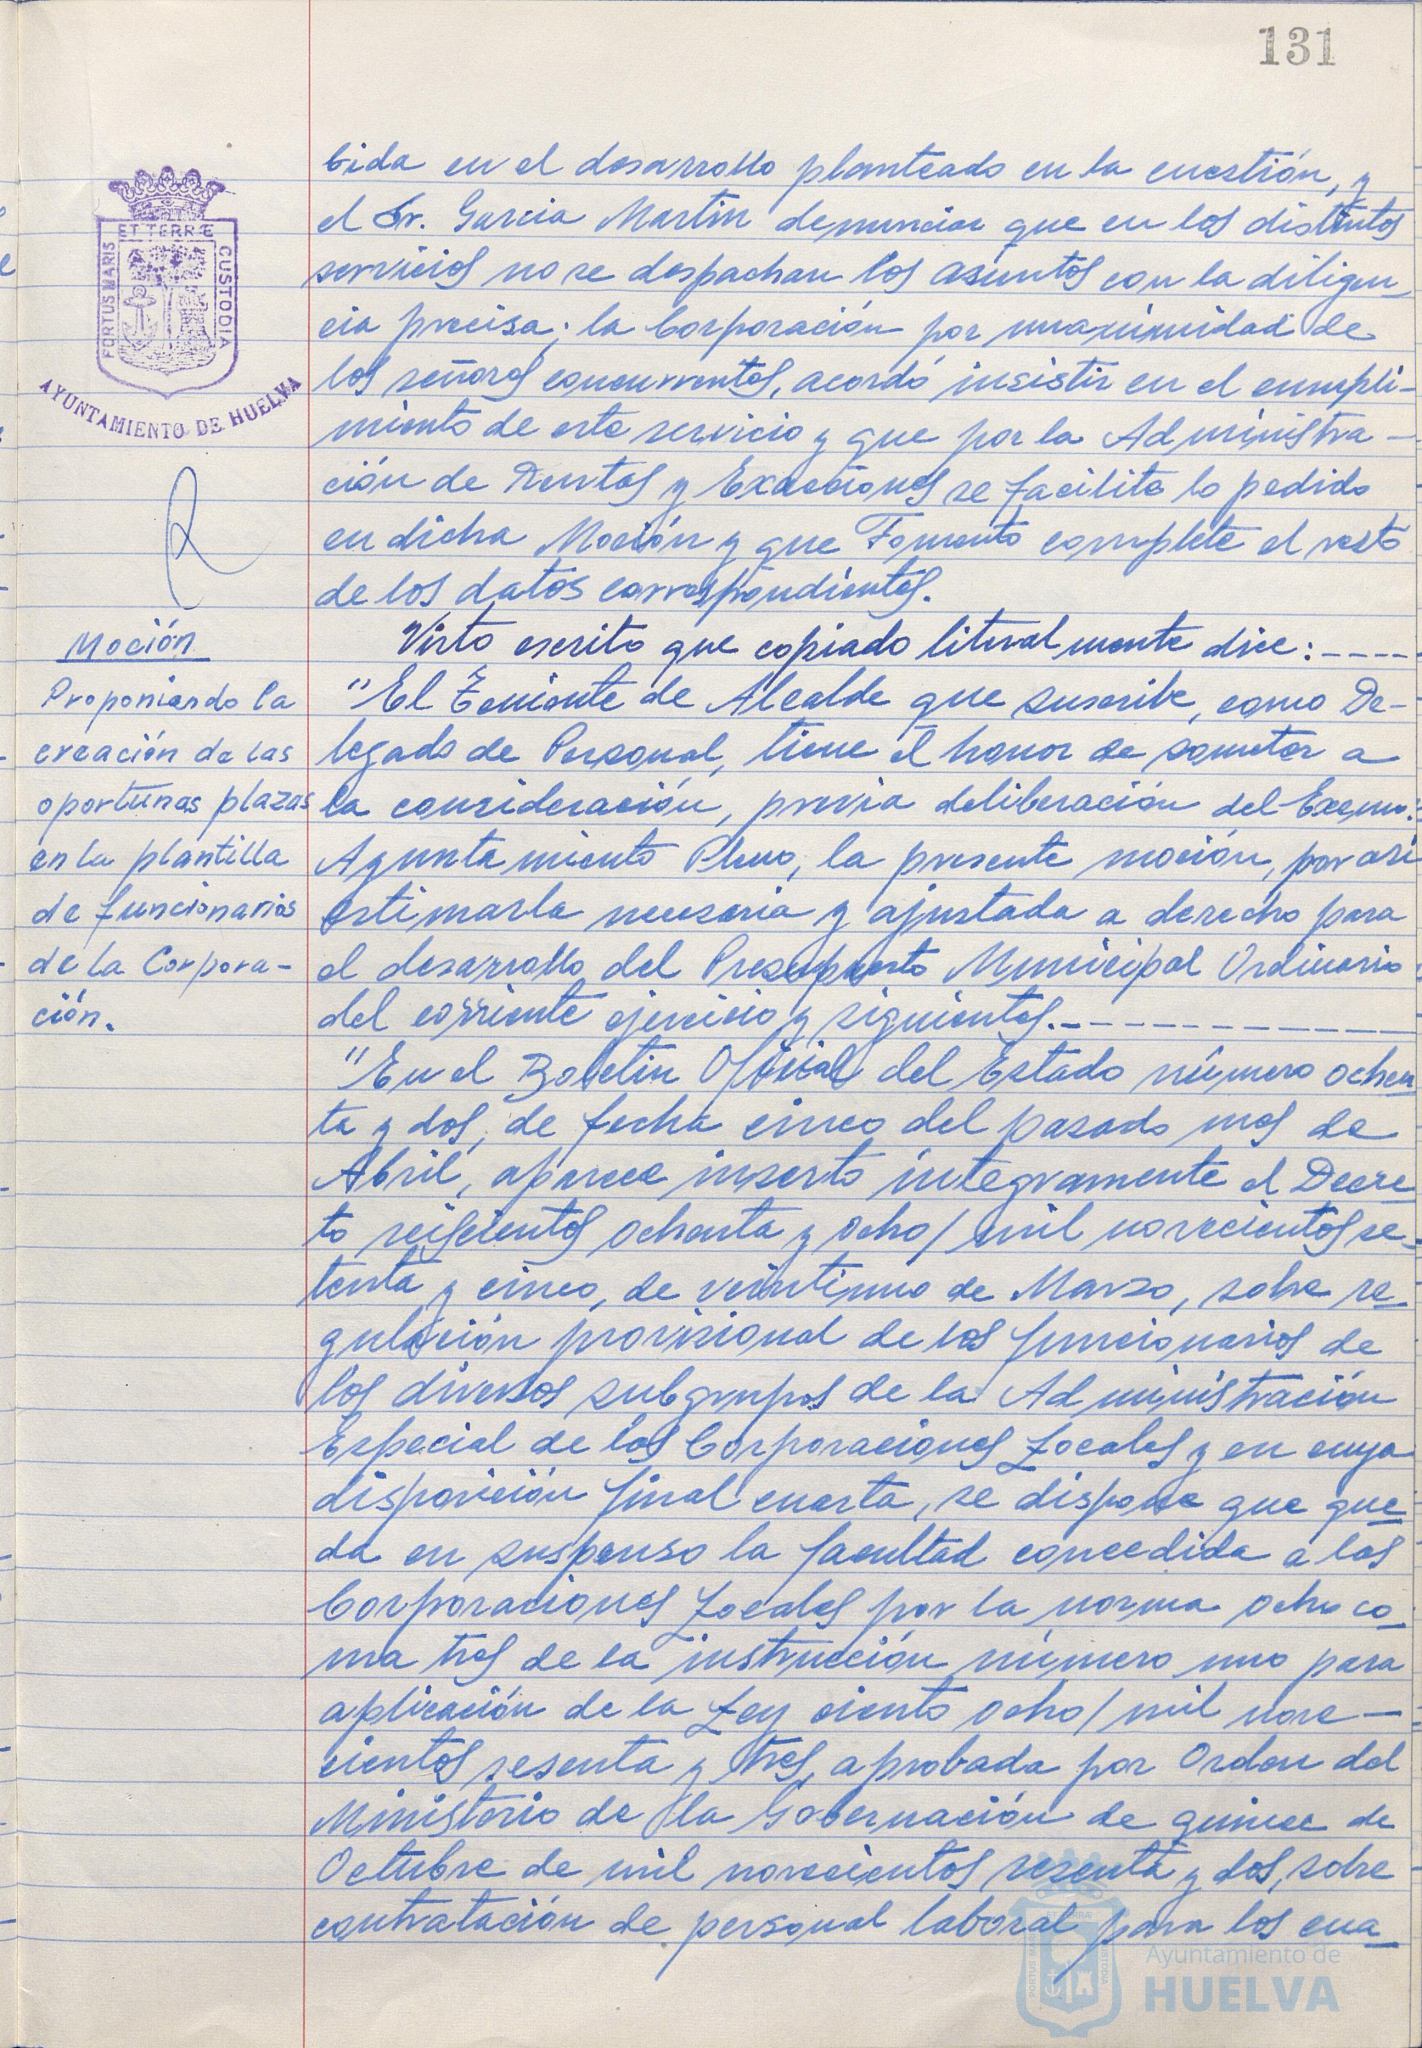 131
bida en el desarrollo planteado en la cuestión, y
el Sr. Garcia Martin denunciar que en los distintos
servicios no se despachan los asuntos con la diligen-
cia precisa; la Corporación por unanimidad de
los señores concurrentes, acordó insistir en el cumpli-
miento de este servicio y que por la Administra-
ción de Rentas y Exacciones se facilite lo pedido
en dicha Moción y que Fomento complete el resto
de los datos correspondientes.
Visto escrito que copiado literalmente dice:----
"El Teniente de Alcalde que suscribe, como De-
legado de Personal, tiene el honor de someter a
la consideración, previa deliberación del Excmo.
Ayuntamiento Pleno, la presente moción, por asi
estimarla necesaria y ajustada a derecho para
el desarrollo del Presupuesto Municipal Ordinario
del corriente ejercicio y siguientes.-----------
"En el Boletin Oficial del Estado número ochen
ta y dos, de fecha cinco del pasado mes de
Abril, aparece inserto integramente el Decre
to seiscientos ochenta y ocho/mil novecientos se-
tenta y cinco, de veintiuno de Marzo, sobre re-
gulación provisional de los funcionarios de
los diversos subgrupos de la Administración
Especial de las Corporaciones Locales y en cuya
disposición final cuarta, se dispone que que-
da en suspenso la facultad concedida a las
Corporaciones Locales por la norma ocho co-
ma tres de la instrucción número uno para
aplicación de la Ley ciento ocho/mil nove-
cientos sesenta y tres, aprobada por Orden del
Ministerio de la Gobernación de quince de
Octubre de mil novecientos sesenta y dos, sobre
contratación de personal laboral para los cua-
ET TERRÆ
PORTUS MARIS
CUSTODIA
AYUNTAMIENTO DE HUELVA
Moción
Proponiendo la
creación de las
oportunas plazas
en la plantilla
de funcionarios
de la Corpora-
ción.
Ayuntamiento de
HUELVA